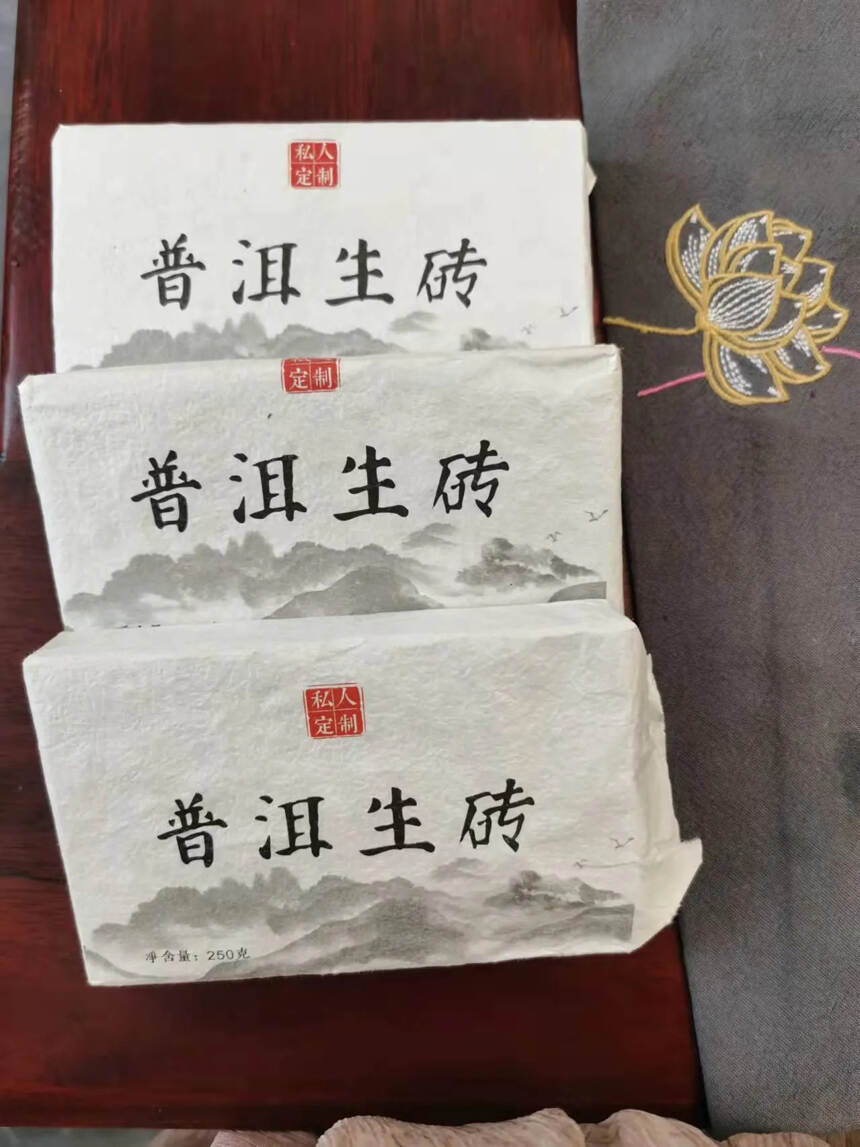 私人
定制
普洱生砖
定制
普洱生砖
私人
定制
普洱生砖
净含量：250克